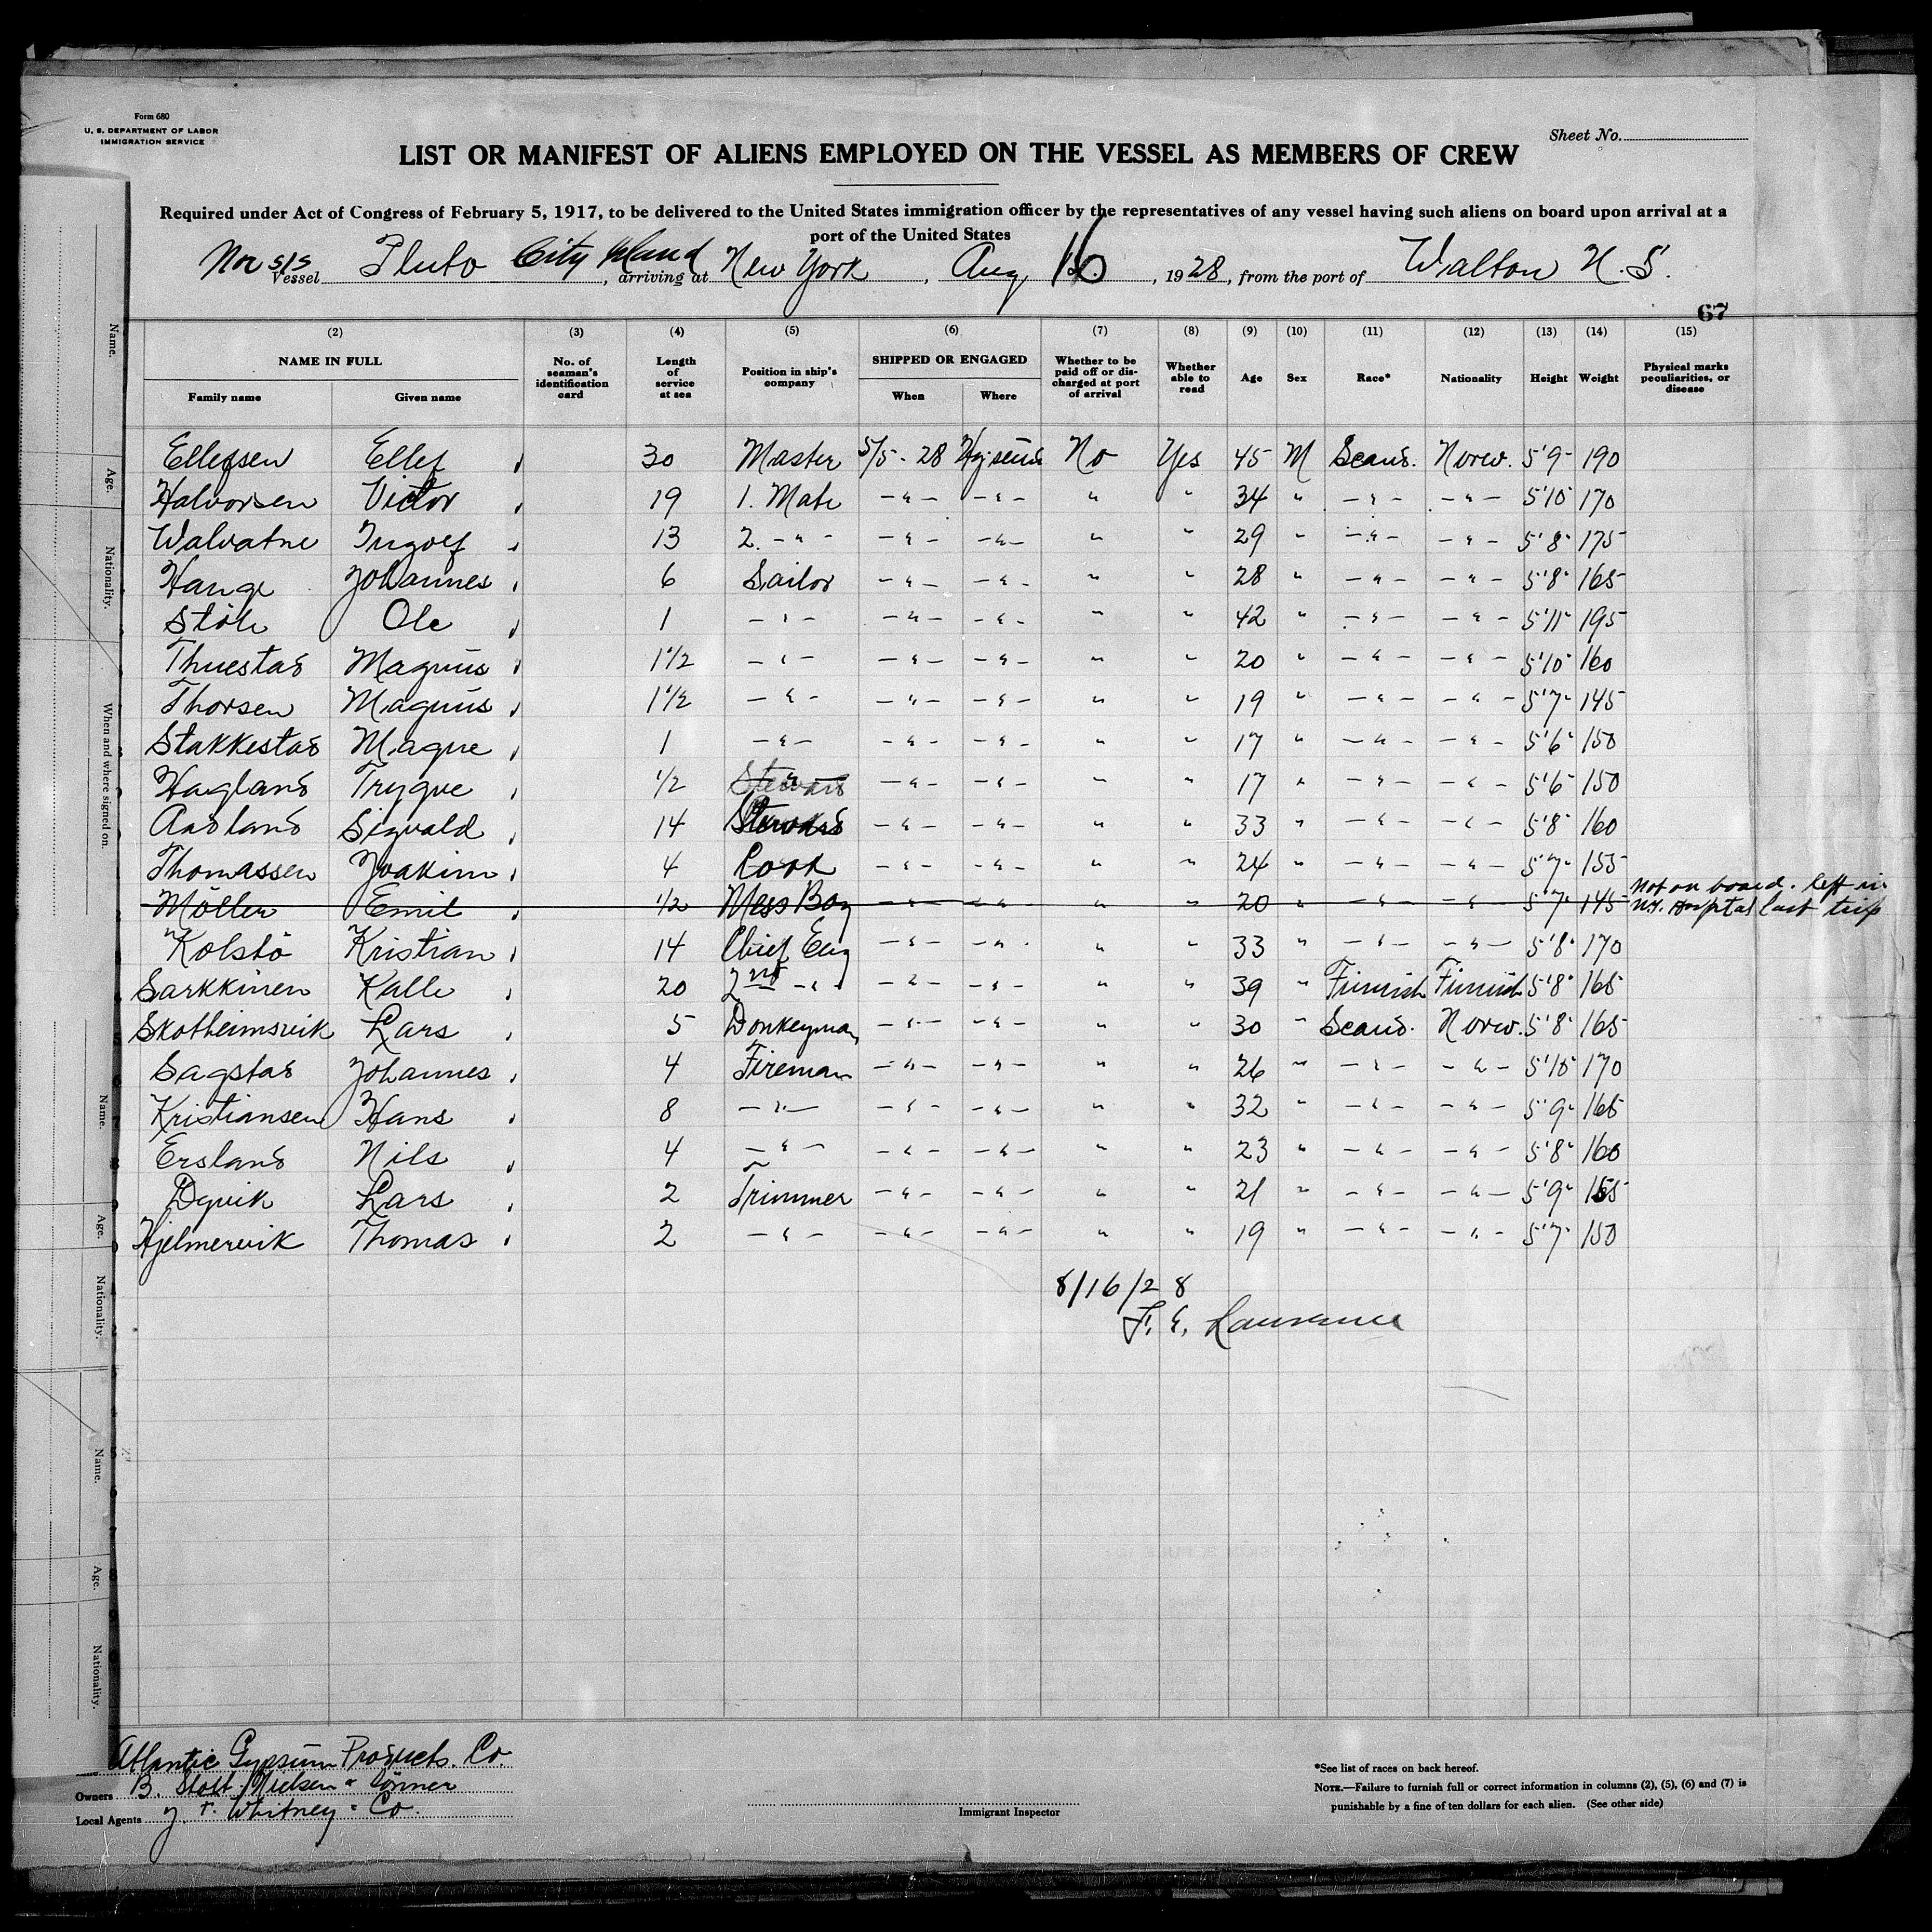 Form 680
U. S. DEPARTMENT OF LABOR
IMMIGRATION SERVICE
Sheet No.
LIST OR MANIFEST OF ALIENS EMPLOYED ON THE VESSEL AS MEMBERS OF CREW
Required under Act of Congress of February 5, 1917, to be delivered to the United States immigration officer by the representatives of any vessel having such aliens on board upon arrival at a
port of the United States
Nor S/S Vessel Pluto City Island, arriving at New York, Aug 16, 1928, from the port of Walton N. S.
67
(2) (3) (4) (5) (6) (7) (8) (9) (10) (11) (12) (13) (14) (15)
NAME IN FULL Family name Given name No. of seaman's identification card Length of service at sea Position in ship's company SHIPPED OR ENGAGED When Where Whether to be paid off or discharged at port of arrival Whether able to read Age Sex Race* Nationality Height Weight Physical marks peculiarities, or disease
Ellefsen Ellef 30 Master 5/5-28 No Yes 45 M Scand. Norw. 5'9" 190
Halvorsen Victor 19 1. Mate -"- -"- " " 34 " -"- -"- 5'10" 170
Walvatne Ingolf 13 2. -"- -"- -"- " " 29 " -"- -"- 5'8" 175
Hauge Johannes 6 Sailor -"- -"- " " 28 " -"- -"- 5'8" 165
Stöle Ole 1 -"- -"- -"- " " 42 " -"- -"- 5'11" 195
Thuestad Magnus 1 1/2 -"- -"- -"- " " 20 " -"- -"- 5'10" 160
Thorsen Magnus 1 1/2 -"- -"- -"- " " 19 " -"- -"- 5'7" 145
Stakkestad Magne 1 -"- -"- -"- " " 17 " -"- -"- 5'6" 150
Hagland Trygve 1/2 -"- -"- " " 17 " -"- -"- 5'6" 150
Aasland Sigvald 14 Steward -"- -"- " " 33 " -"- -"- 5'8" 160
Thomassen Joakim 4 Cook -"- -"- " " 24 " -"- -"- 5'7" 155
Möller Emil 1/2 Mess Boy -"- -"- " " 20 " -"- -"- 5'7" 145 Not on board. left in
N.Y. Hospital last trip
Kolstö Kristian 14 Chief Eng -"- -"- " " 33 " -"- -"- 5'8" 170
Sarkkinen Kalle 20 2nd -"- -"- -"- " " 39 " Finnish Finnish 5'8" 165
Skotheimsvik Lars 5 Donkeyman -"- -"- " " 30 " Scand. Norw. 5'8" 165
Sagstad Johannes 4 Fireman -"- -"- " " 26 " -"- -"- 5'10" 170
Kristiansen Hans 8 -"- -"- -"- " " 32 " -"- -"- 5'9" 165
Ersland Nils 4 -"- -"- -"- " " 23 " -"- -"- 5'8" 160
Dyvik Lars 2 Trimmer -"- -"- " " 21 " -"- -"- 5'9" 155
Hjelmervik Thomas 2 -"- -"- -"- " " 19 " -"- -"- 5'7" 150
8/16/28
F. E. Lawrence
Atlantic Gypsum Products. Co.
Owners B. Stolt-Nielsen & Sönner
Local Agents J. F. Whitney & Co.
Immigrant Inspector
*See list of races on back hereof.
NOTE.—Failure to furnish full or correct information in columns (2), (5), (6) and (7) is
punishable by a fine of ten dollars for each alien. (See other side)
Name.
Age.
Nationality.
When and where signed on.
Name.
Age.
Nationality.
Name.
Age.
Nationality.